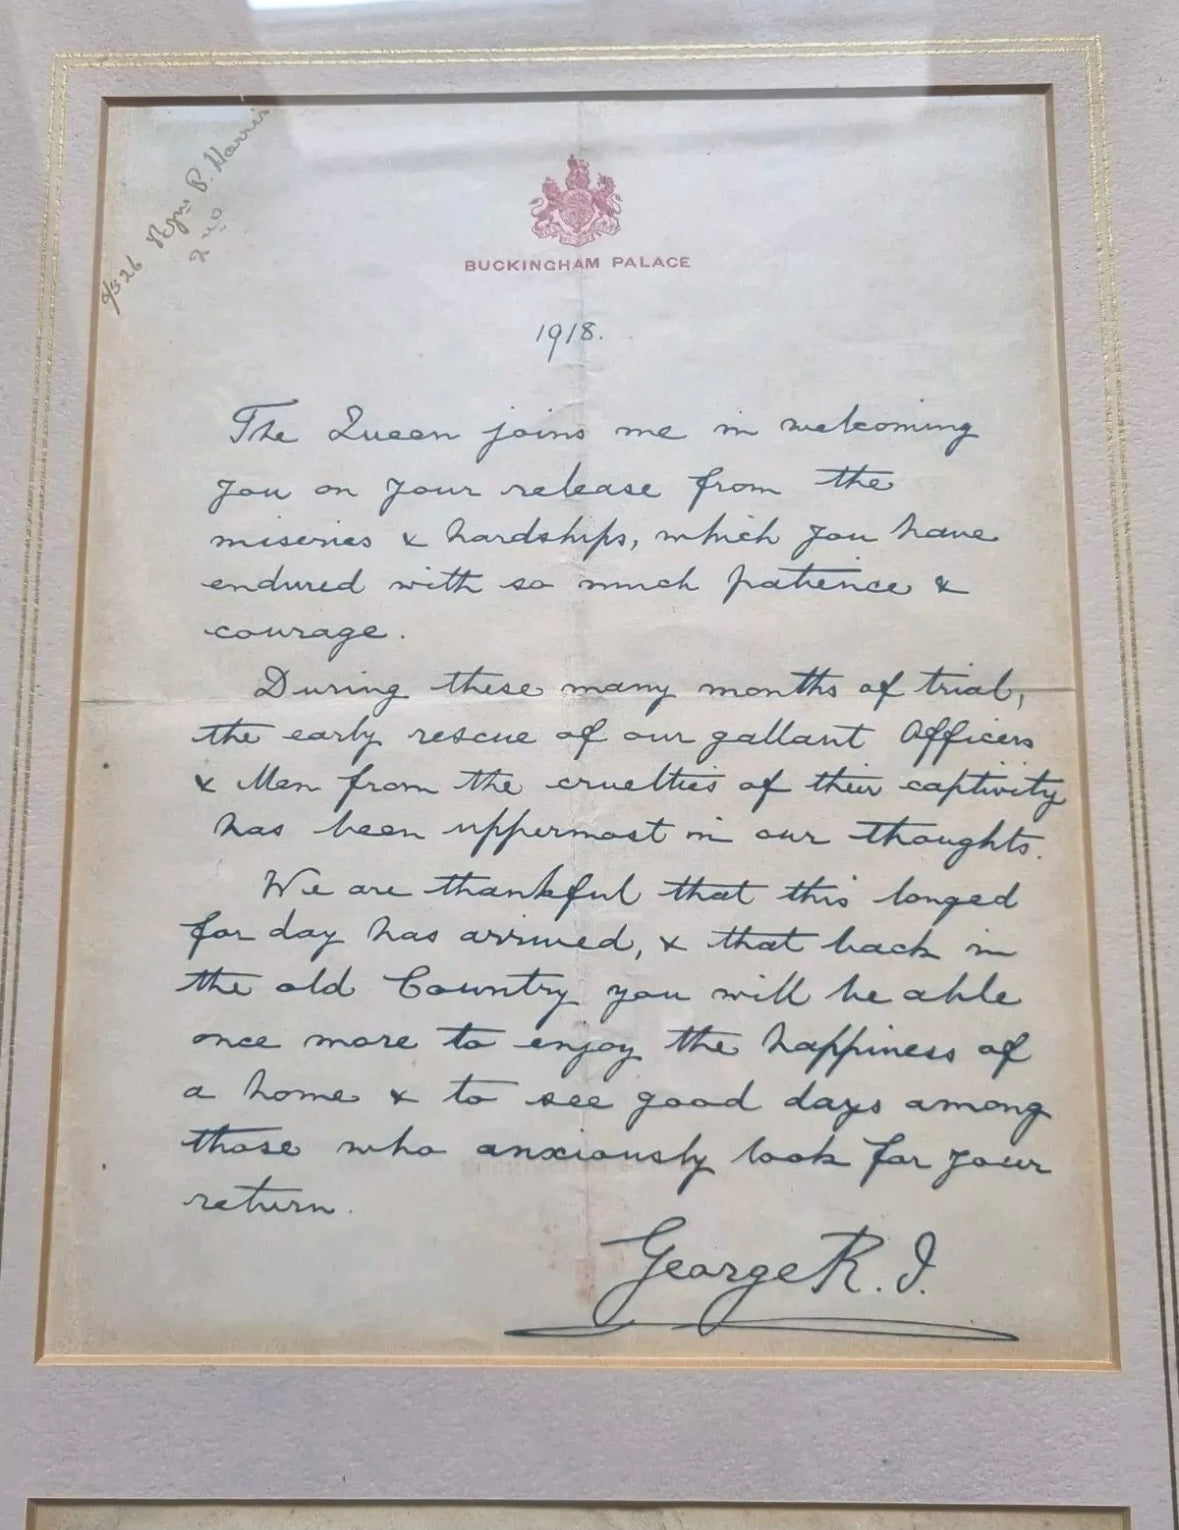 P. Harris
BUCKINGHAM PALACE
1918.
The Queen joins me in welcoming
you on your release from the
miseries & hardships, which you have
endured with so much patience &
courage.
During these many months of trial,
the early rescue of our gallant Officers
& Men from the cruelties of their captivity
has been uppermost in our thoughts.
We are thankful that this longed
for day has arrived, & that back in
the old Country you will be able
once more to enjoy the happiness of
a home & to see good days among
those who anxiously look for your
return.
George R.I.